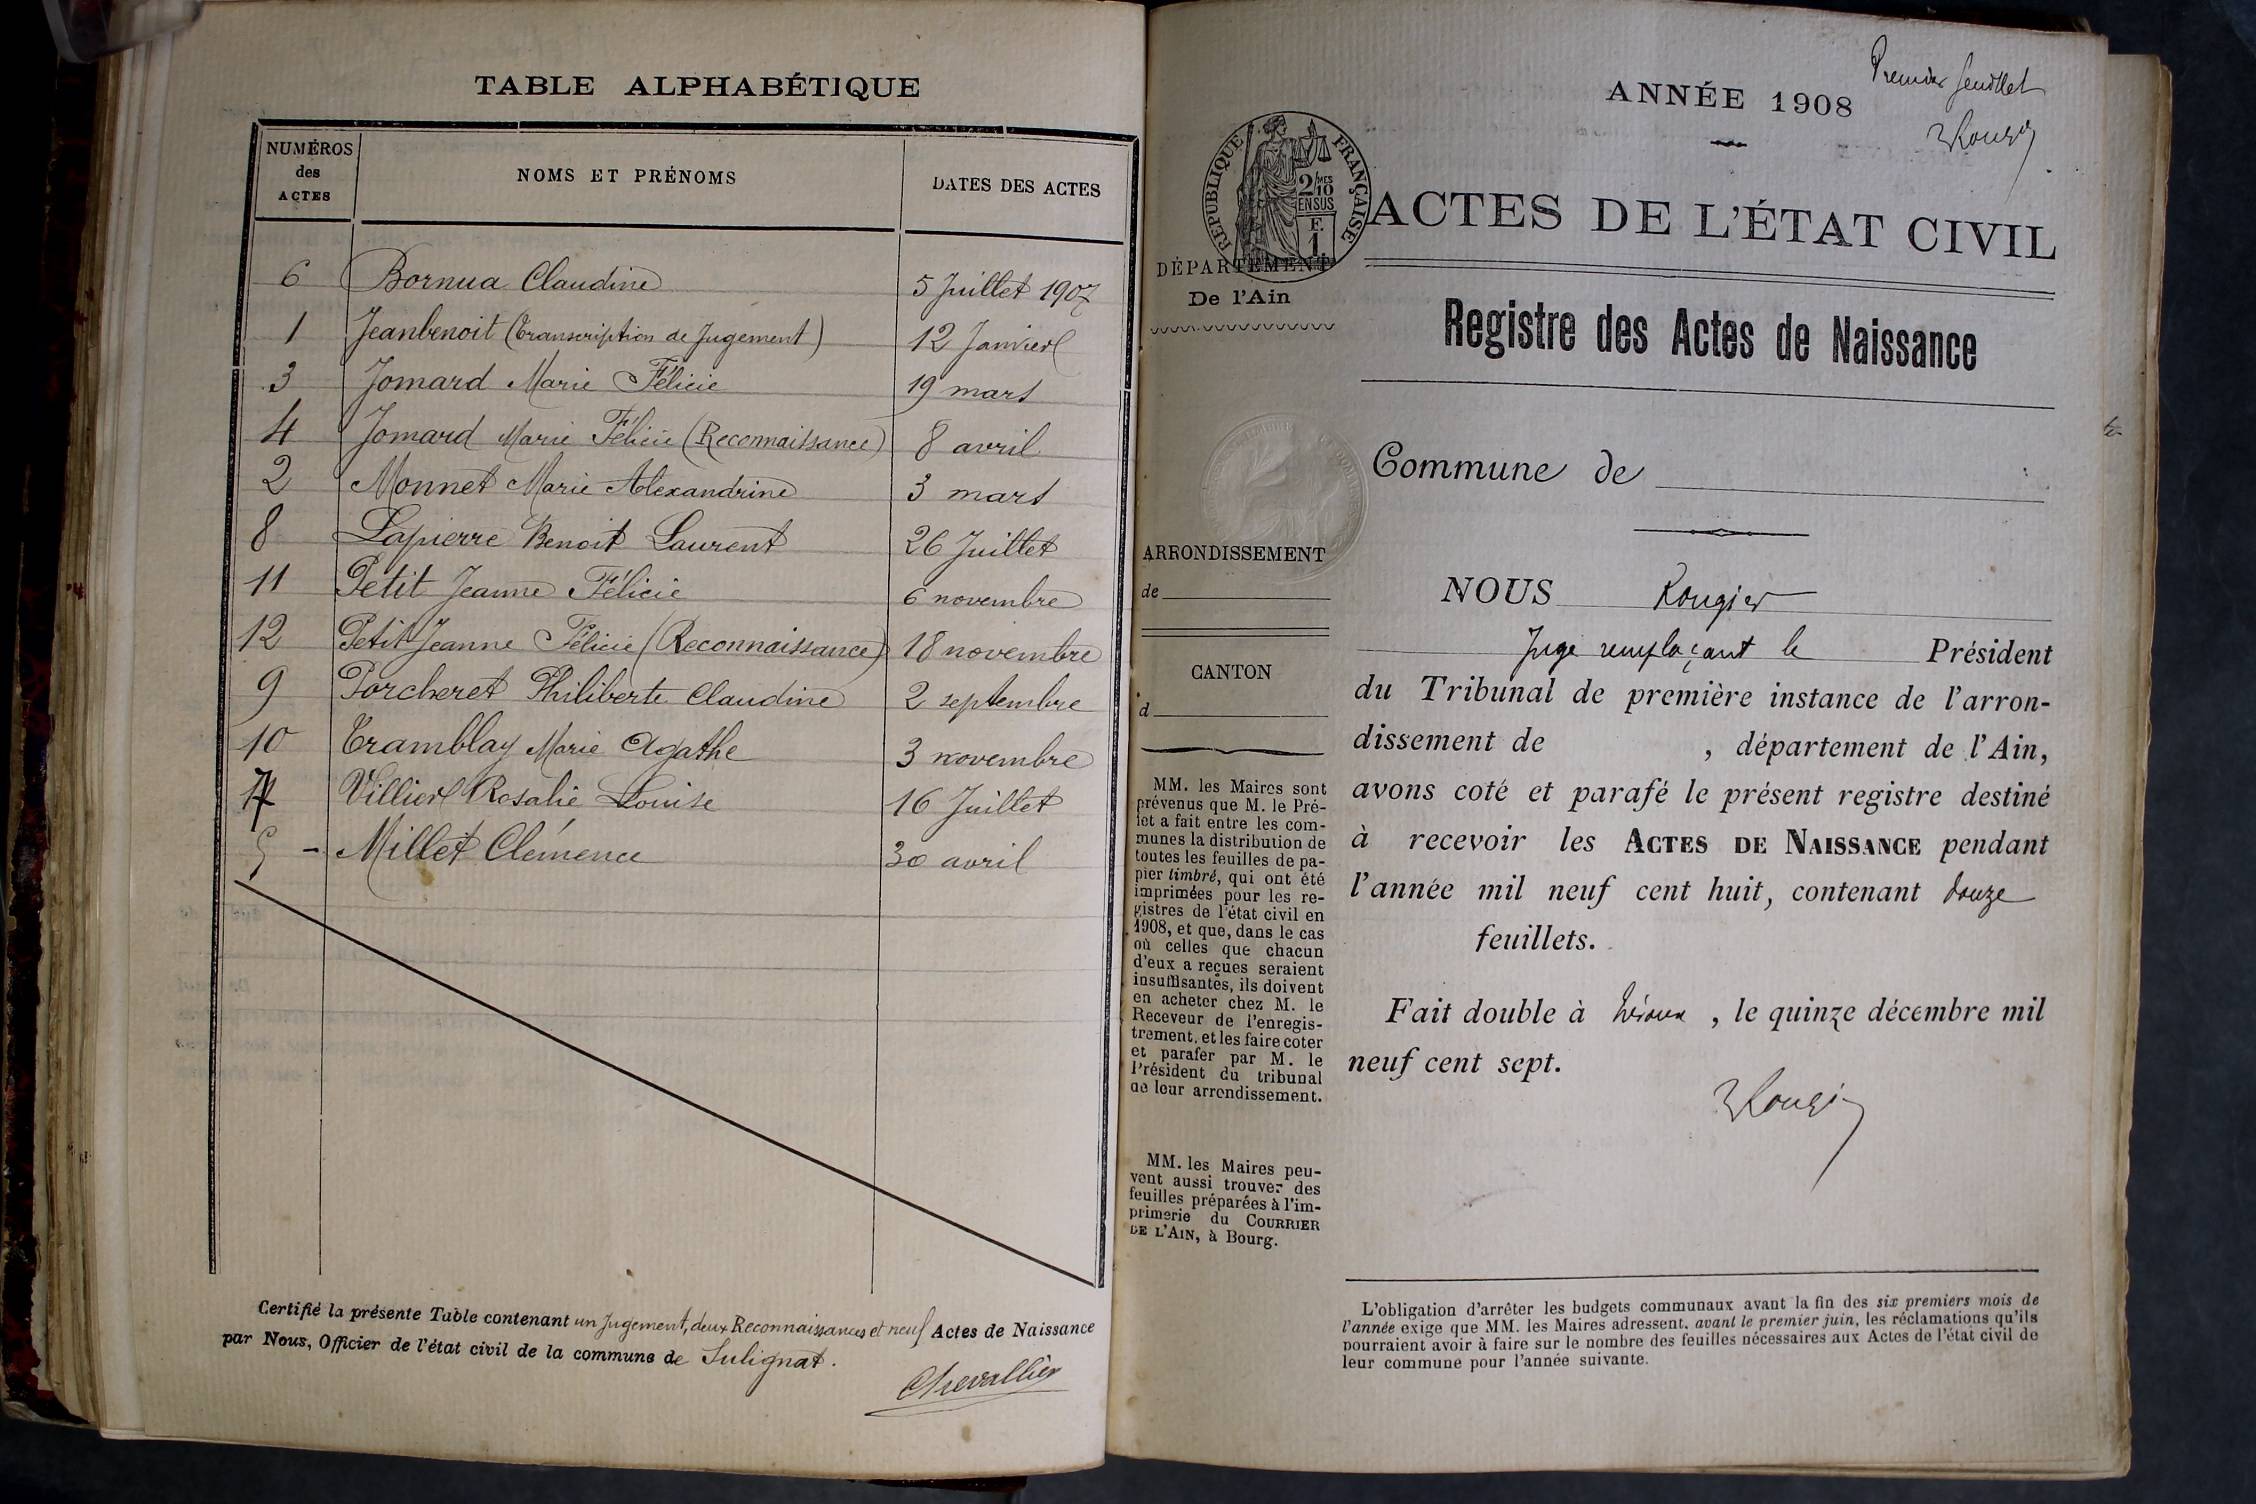 TABLE ALPHABÉTIQUE
NUMÉROS des ACTES NOMS ET PRÉNOMS DATES DES ACTES
6 Bornua Claudine 5 Juillet 1907
1 Jeanbenoit (Transcription de Jugement) 12 Janvier
3 Jomard Marie Félicie 19 mars
4 Jomard Marie Félicie (Reconnaissance) 8 avril
2 Monnet Marie Alexandrine 3 mars
8 Lapierre Benoit Laurent 26 Juillet
11 Petit Jeanne Félicie 6 novembre
12 Petit Jeanne Félicie (Reconnaissance) 18 novembre
9 Porcheret Philiberte Claudine 2 septembre
10 Tramblay Marie Agathe 3 novembre
7 Villier Rosalie Louise 16 Juillet
5 - Millet Clémence 30 avril
Certifié la présente Table contenant un Jugement, deux Reconnaissances et neuf Actes de Naissance
par Nous, Officier de l'état civil de la commune de Sulignat.
Chevallier
Premier feuillet
Rougier
ANNÉE 1908
RÉPUBLIQUE FRANÇAISE
2/MES 10
EN SUS
F. 1
ACTES DE L'ÉTAT CIVIL
DÉPARTEMENT
De l'Ain
Registre des Actes de Naissance
Commune de
ARRONDISSEMENT
de
CANTON
d
MM. les Maires sont
prévenus que M. le Pré-
fet a fait entre les com-
munes la distribution de
toutes les feuilles de pa-
pier timbré, qui ont été
imprimées pour les re-
gistres de l'état civil en
1908, et que, dans le cas
où celles que chacun
d'eux a reçues seraient
insuffisantes, ils doivent
en acheter chez M. le
Receveur de l'enregis-
trement, et les faire coter
et parafer par M. le
Président du tribunal
de leur arrondissement.
MM. les Maires peu-
vent aussi trouver des
feuilles préparées à l'im-
primerie du COURRIER
DE L'AIN, à Bourg.
NOUS Rougier
Juge remplaçant le Président
du Tribunal de première instance de l'arron-
dissement de , département de l'Ain,
avons coté et parafé le présent registre destiné
à recevoir les ACTES DE NAISSANCE pendant
l'année mil neuf cent huit, contenant douze
feuillets.
Fait double à Trévoux, le quinze décembre mil
neuf cent sept.
Rougier
L'obligation d'arrêter les budgets communaux avant la fin des six premiers mois de
l'année exige que MM. les Maires adressent, avant le premier juin, les réclamations qu'ils
pourraient avoir à faire sur le nombre des feuilles nécessaires aux Actes de l'état civil de
leur commune pour l'année suivante.